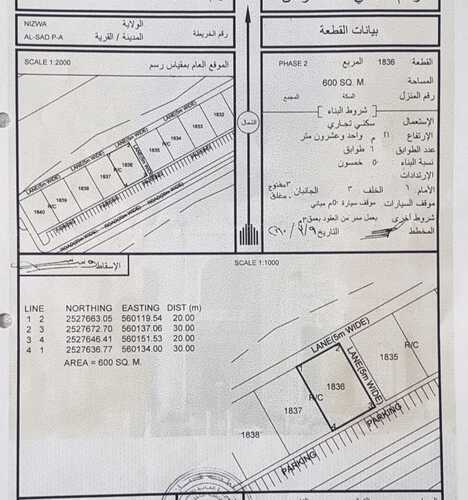 NIZWA
الولاية
AL-SAD P-A
المدينة / القرية
رقم الخريطة
SCALE 1:2000
الموقع العام بمقياس رسم
1832
1833
1834
1835
1836
1837
1838
1839
1840
R/C
LANE(5m WIDE)
LANE(5m WIDE)
LANE(5m WIDE)
PARKING
PARKING
ROAD(20m WIDE)
ROAD(20m WIDE)
الشمال
بيانات القطعة
PHASE 2
القطعة 1836 المربع
المساحة 600 SQ. M.
رقم المنزل السكة المجمع
شروط البناء
الإستعمال سكني تجاري
الإرتفاع ٢١ م واحد وعشرون متر
عدد الطوابق ٦ طوابق
نسبة البناء ٥٠ خمسون
الإرتدادات
الأمام ٦ الخلف ٣ الجانبان ٣ مفتوح
مغلق
موقف السيارات موقف سيارة
شروط أخرى يعمل ممر من العقود بعمق ٣
المخطط التاريخ
الإسقاط
SCALE 1:1000
LINE NORTHING EASTING DIST (m)
1 2 2527663.05 560119.54 20.00
2 3 2527672.70 560137.06 30.00
3 4 2527646.41 560151.53 20.00
4 1 2527636.77 560134.00 30.00
AREA = 600 SQ. M.
LANE(5m WIDE)
LANE(5m WIDE)
R/C
1835
1836
R/C
1837
1838
PARKING
PARKING